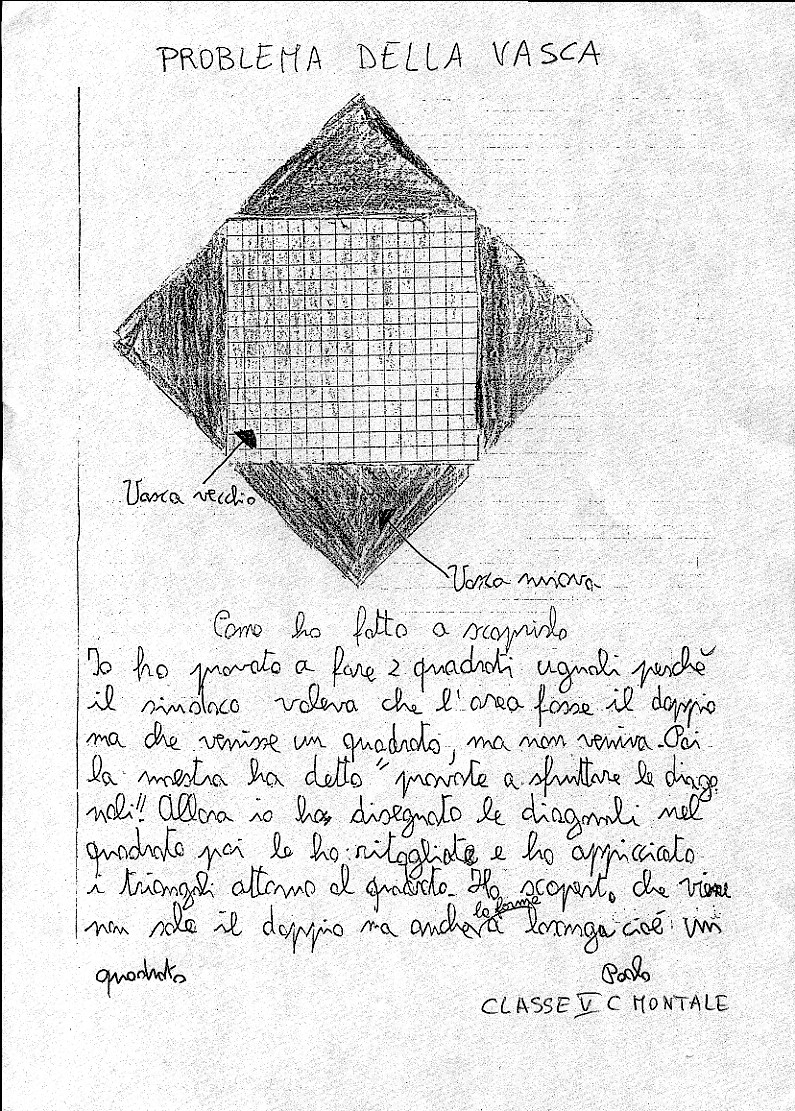 PROBLEMA DELLA VASCA
Vasca vecchia
Vasca nuova
Come ho fatto a scoprirlo
Io ho provato a fare 2 quadrati uguali perchè
il sindaco voleva che l'area fosse il doppio
ma che venisse un quadrato, ma non veniva. Poi
la maestra ha detto "provate a sfruttare le diago
nali!! Allora io ho disegnato le diagonali nel
quadrato poi le ho ritagliate e ho appicciato
i triangoli attorno al quadrato. Ho scoperto che viene
la forma
non solo il doppio ma anche a losanga cioé un
quadrato
Paolo
CLASSE V C MONTALE